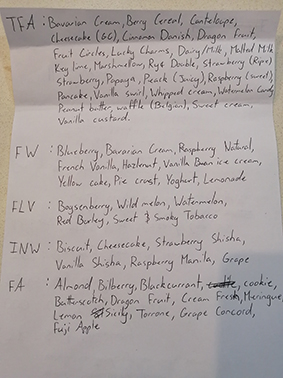 TFA : Bavarian Cream, Berry Cereal, Cantaloupe,
Cheesecake (GC), Cinnamon Danish, Dragon Fruit,
Fruit Circles, Lucky Charms, Dairy/Milk, Malted Milk
Key lime, Marshmallow, Ry6 Double, Strawberry (Ripe)
Strawberry, Papaya, Peach (Juicy), Raspberry (sweet),
Pancake, Vanilla swirl, Whipped cream, Watermelon Candy
Peanut butter, waffle (Belgian), Sweet cream,
Vanilla custard.
FW : Blueberry, Bavarian Cream, Raspberry Natural,
French Vanilla, Hazelnut, Vanilla Bean ice cream,
Yellow cake, Pie crust, Yoghurt, Lemonade
FLV : Boysenberry, Wild melon, Watermelon,
Red Burley, Sweet & Smoky Tobacco
INW : Biscuit, Cheesecake, Strawberry Shisha,
Vanilla Shisha, Raspberry Manila, Grape
FA : Almond, Bilberry, Blackcurrant, cookie,
Butterscotch, Dragon Fruit, Cream Fresh, Meringue,
Lemon Sicily, Torrone, Grape Concord,
Fuji Apple